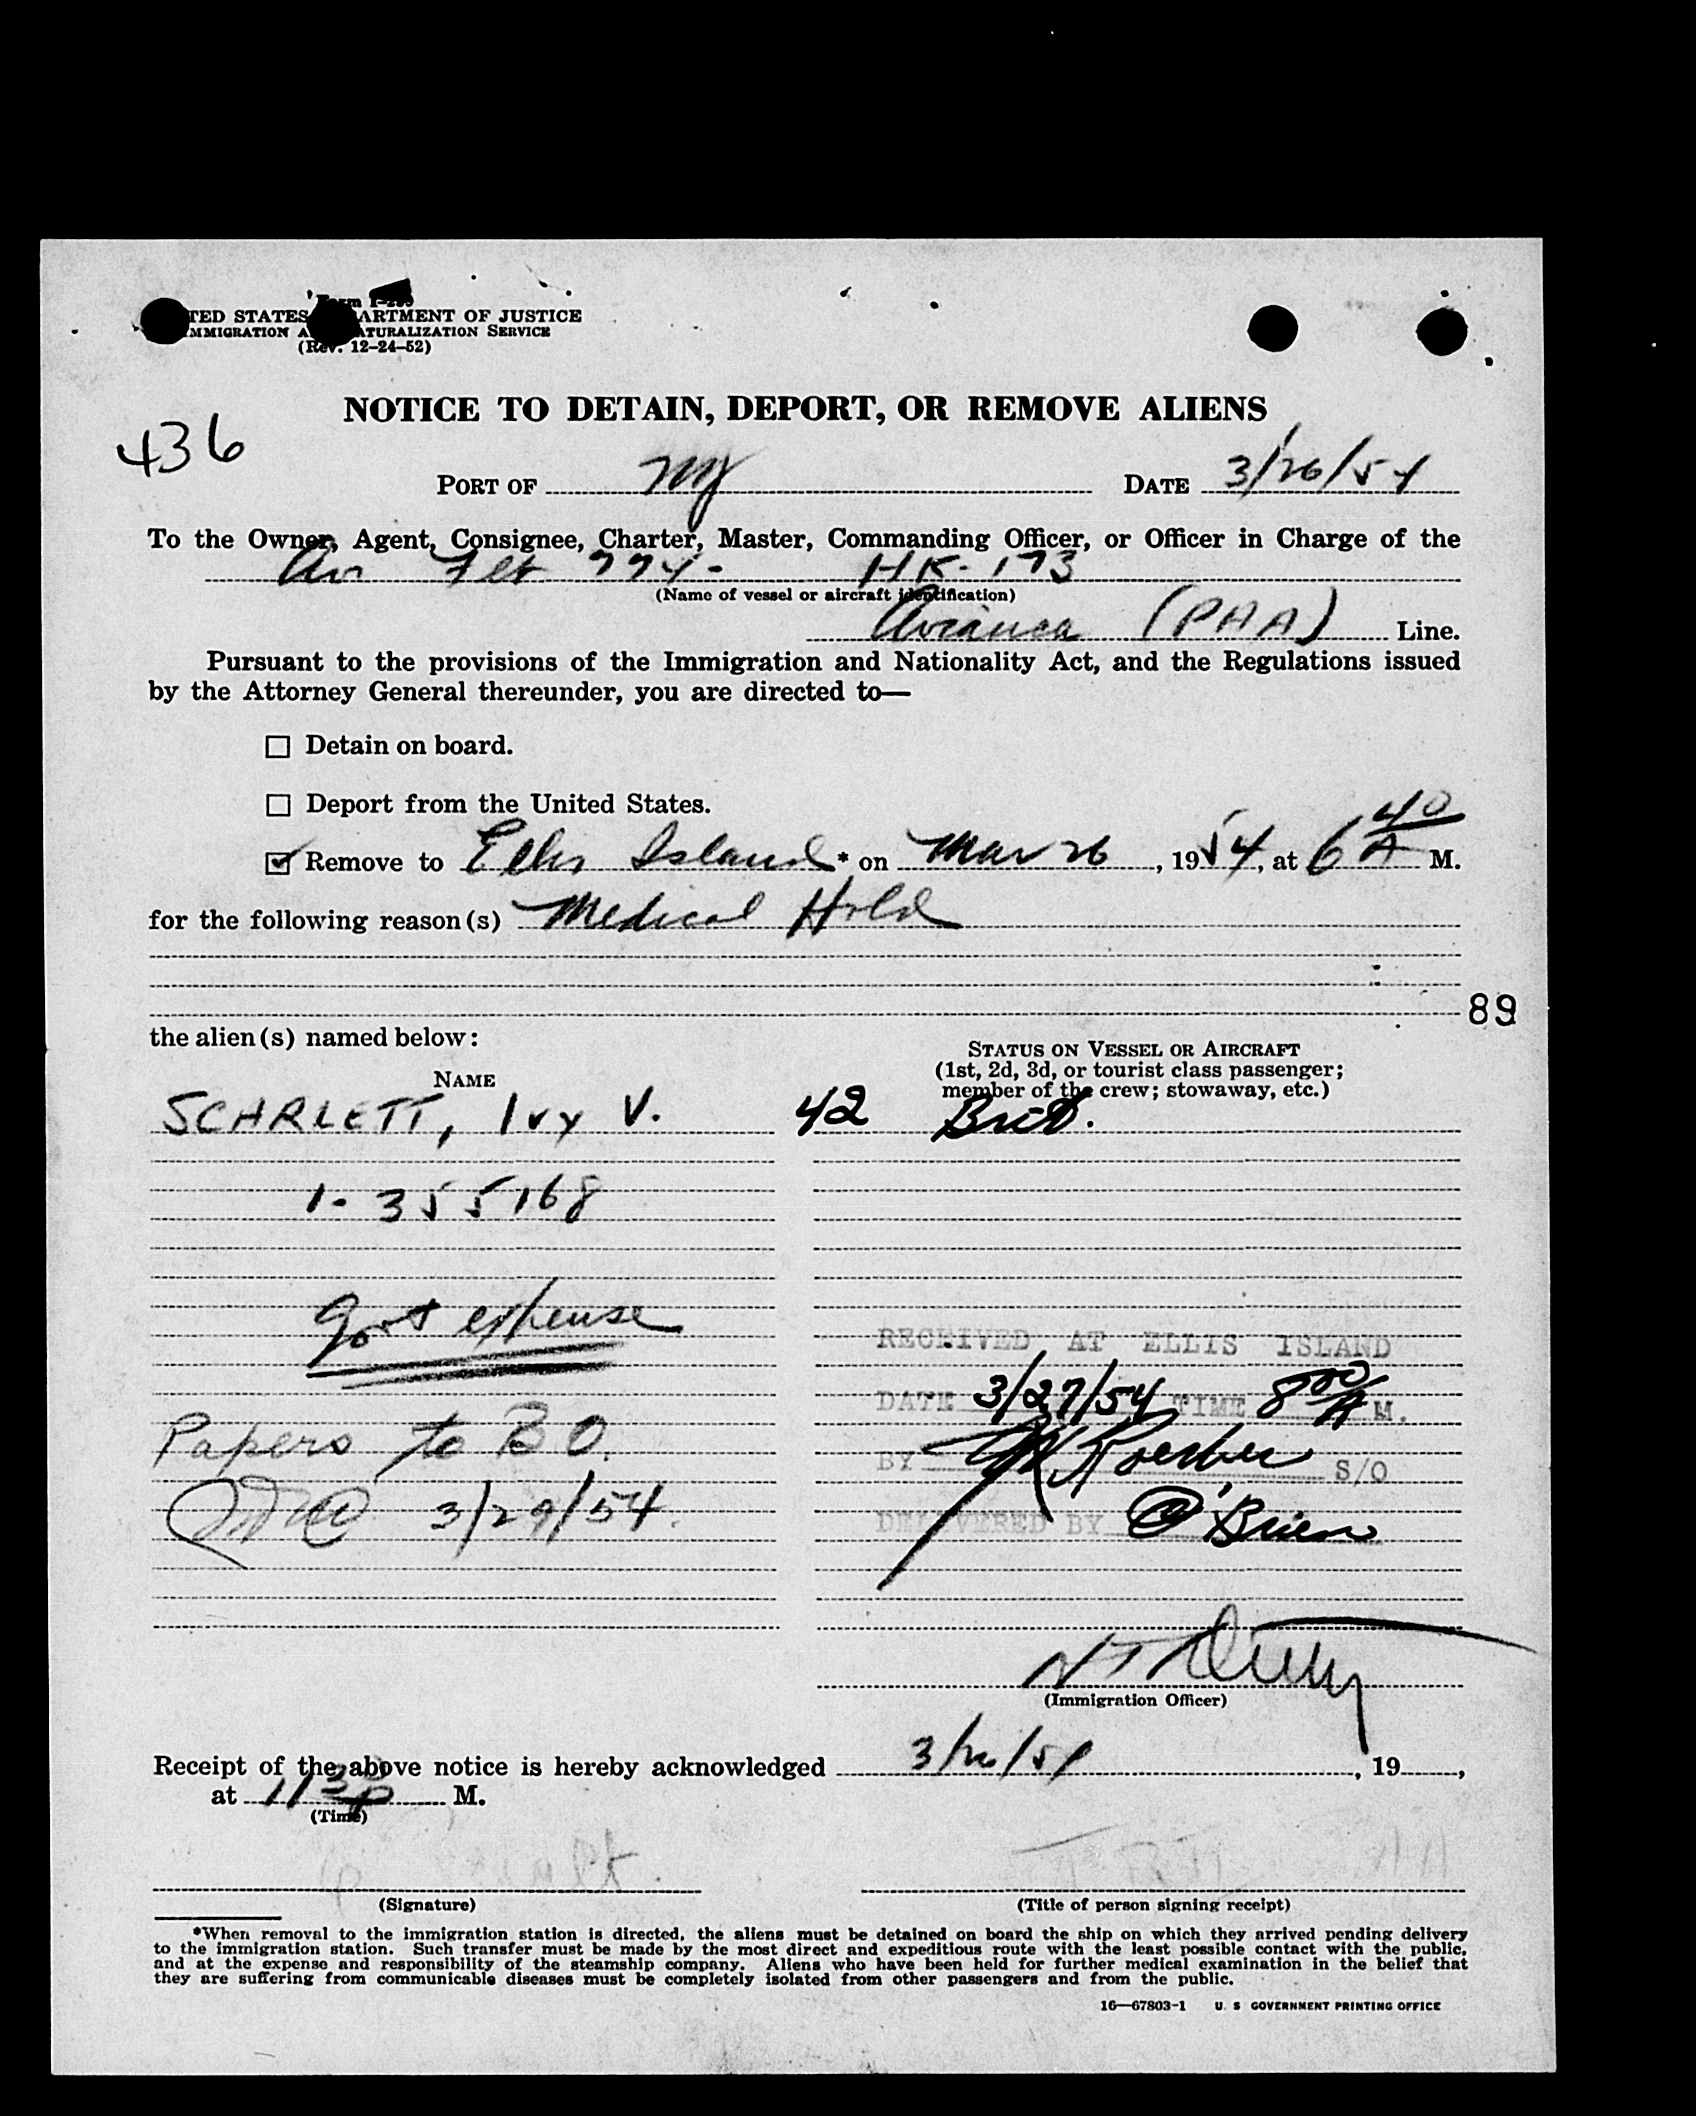 Form I-259
TED STATES ARTMENT OF JUSTICE
MMIGRATION A TURALIZATION SERVICE
(Rev. 12-24-52)
NOTICE TO DETAIN, DEPORT, OR REMOVE ALIENS
436
PORT OF NY DATE 3/26/54
To the Owner, Agent, Consignee, Charter, Master, Commanding Officer, or Officer in Charge of the
Av Flt 774- HK-173
(Name of vessel or aircraft identification)
Avianca (PAA) Line.
Pursuant to the provisions of the Immigration and Nationality Act, and the Regulations issued
by the Attorney General thereunder, you are directed to—
☐ Detain on board.
☐ Deport from the United States.
☑ Remove to Ellis Island* on Mar 26, 1954, at 6 40 A M.
for the following reason(s) Medical Hold
89
the alien(s) named below:
STATUS ON VESSEL OR AIRCRAFT
(1st, 2d, 3d, or tourist class passenger;
member of the crew; stowaway, etc.)
NAME
SCARLETT, Ivy V. 42 Brit.
1-355168
Govt expense
RECEIVED AT ELLIS ISLAND
DATE 3/27/54 TIME 8 00 A M.
Papers to B O.
BY S/O
3/29/54.
DELIVERED BY O'Brien
(Immigration Officer)
Receipt of the above notice is hereby acknowledged 3/26/54, 19
at 11 30 P M.
(Time)
(Signature) (Title of person signing receipt)
*When removal to the immigration station is directed, the aliens must be detained on board the ship on which they arrived pending delivery
to the immigration station. Such transfer must be made by the most direct and expeditious route with the least possible contact with the public,
and at the expense and responsibility of the steamship company. Aliens who have been held for further medical examination in the belief that
they are suffering from communicable diseases must be completely isolated from other passengers and from the public.
16—67803-1 U. S GOVERNMENT PRINTING OFFICE